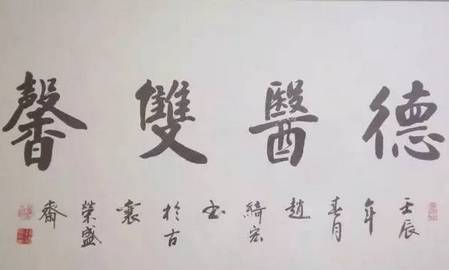 德醫雙馨
壬辰年春月趙綺宏书於古襄榮盛齋